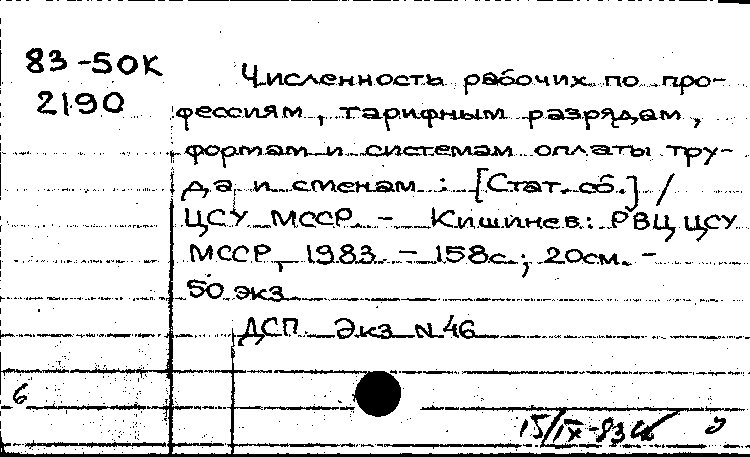 83-50К
2190
Численность рабочих по про-
фессиям, тарифным разрядам,
формам и системам оплаты тру-
да и сменам : [Стат. сб.] /
ЦСУ МССР. – Кишинев: РВЦ ЦСУ
МССР, 1983. – 158с.; 20см. –
50 экз
ДСП. Экз N 46
6
15/IX-83